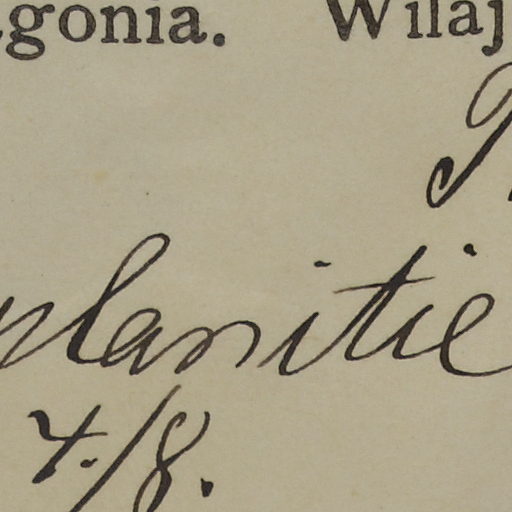 agonia. Wilaj
planitie
4./8.